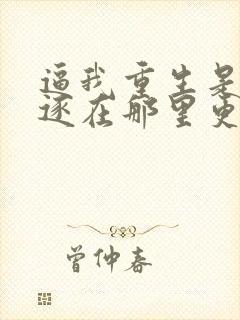 逼我重生是
逐在那里更
曾仲春